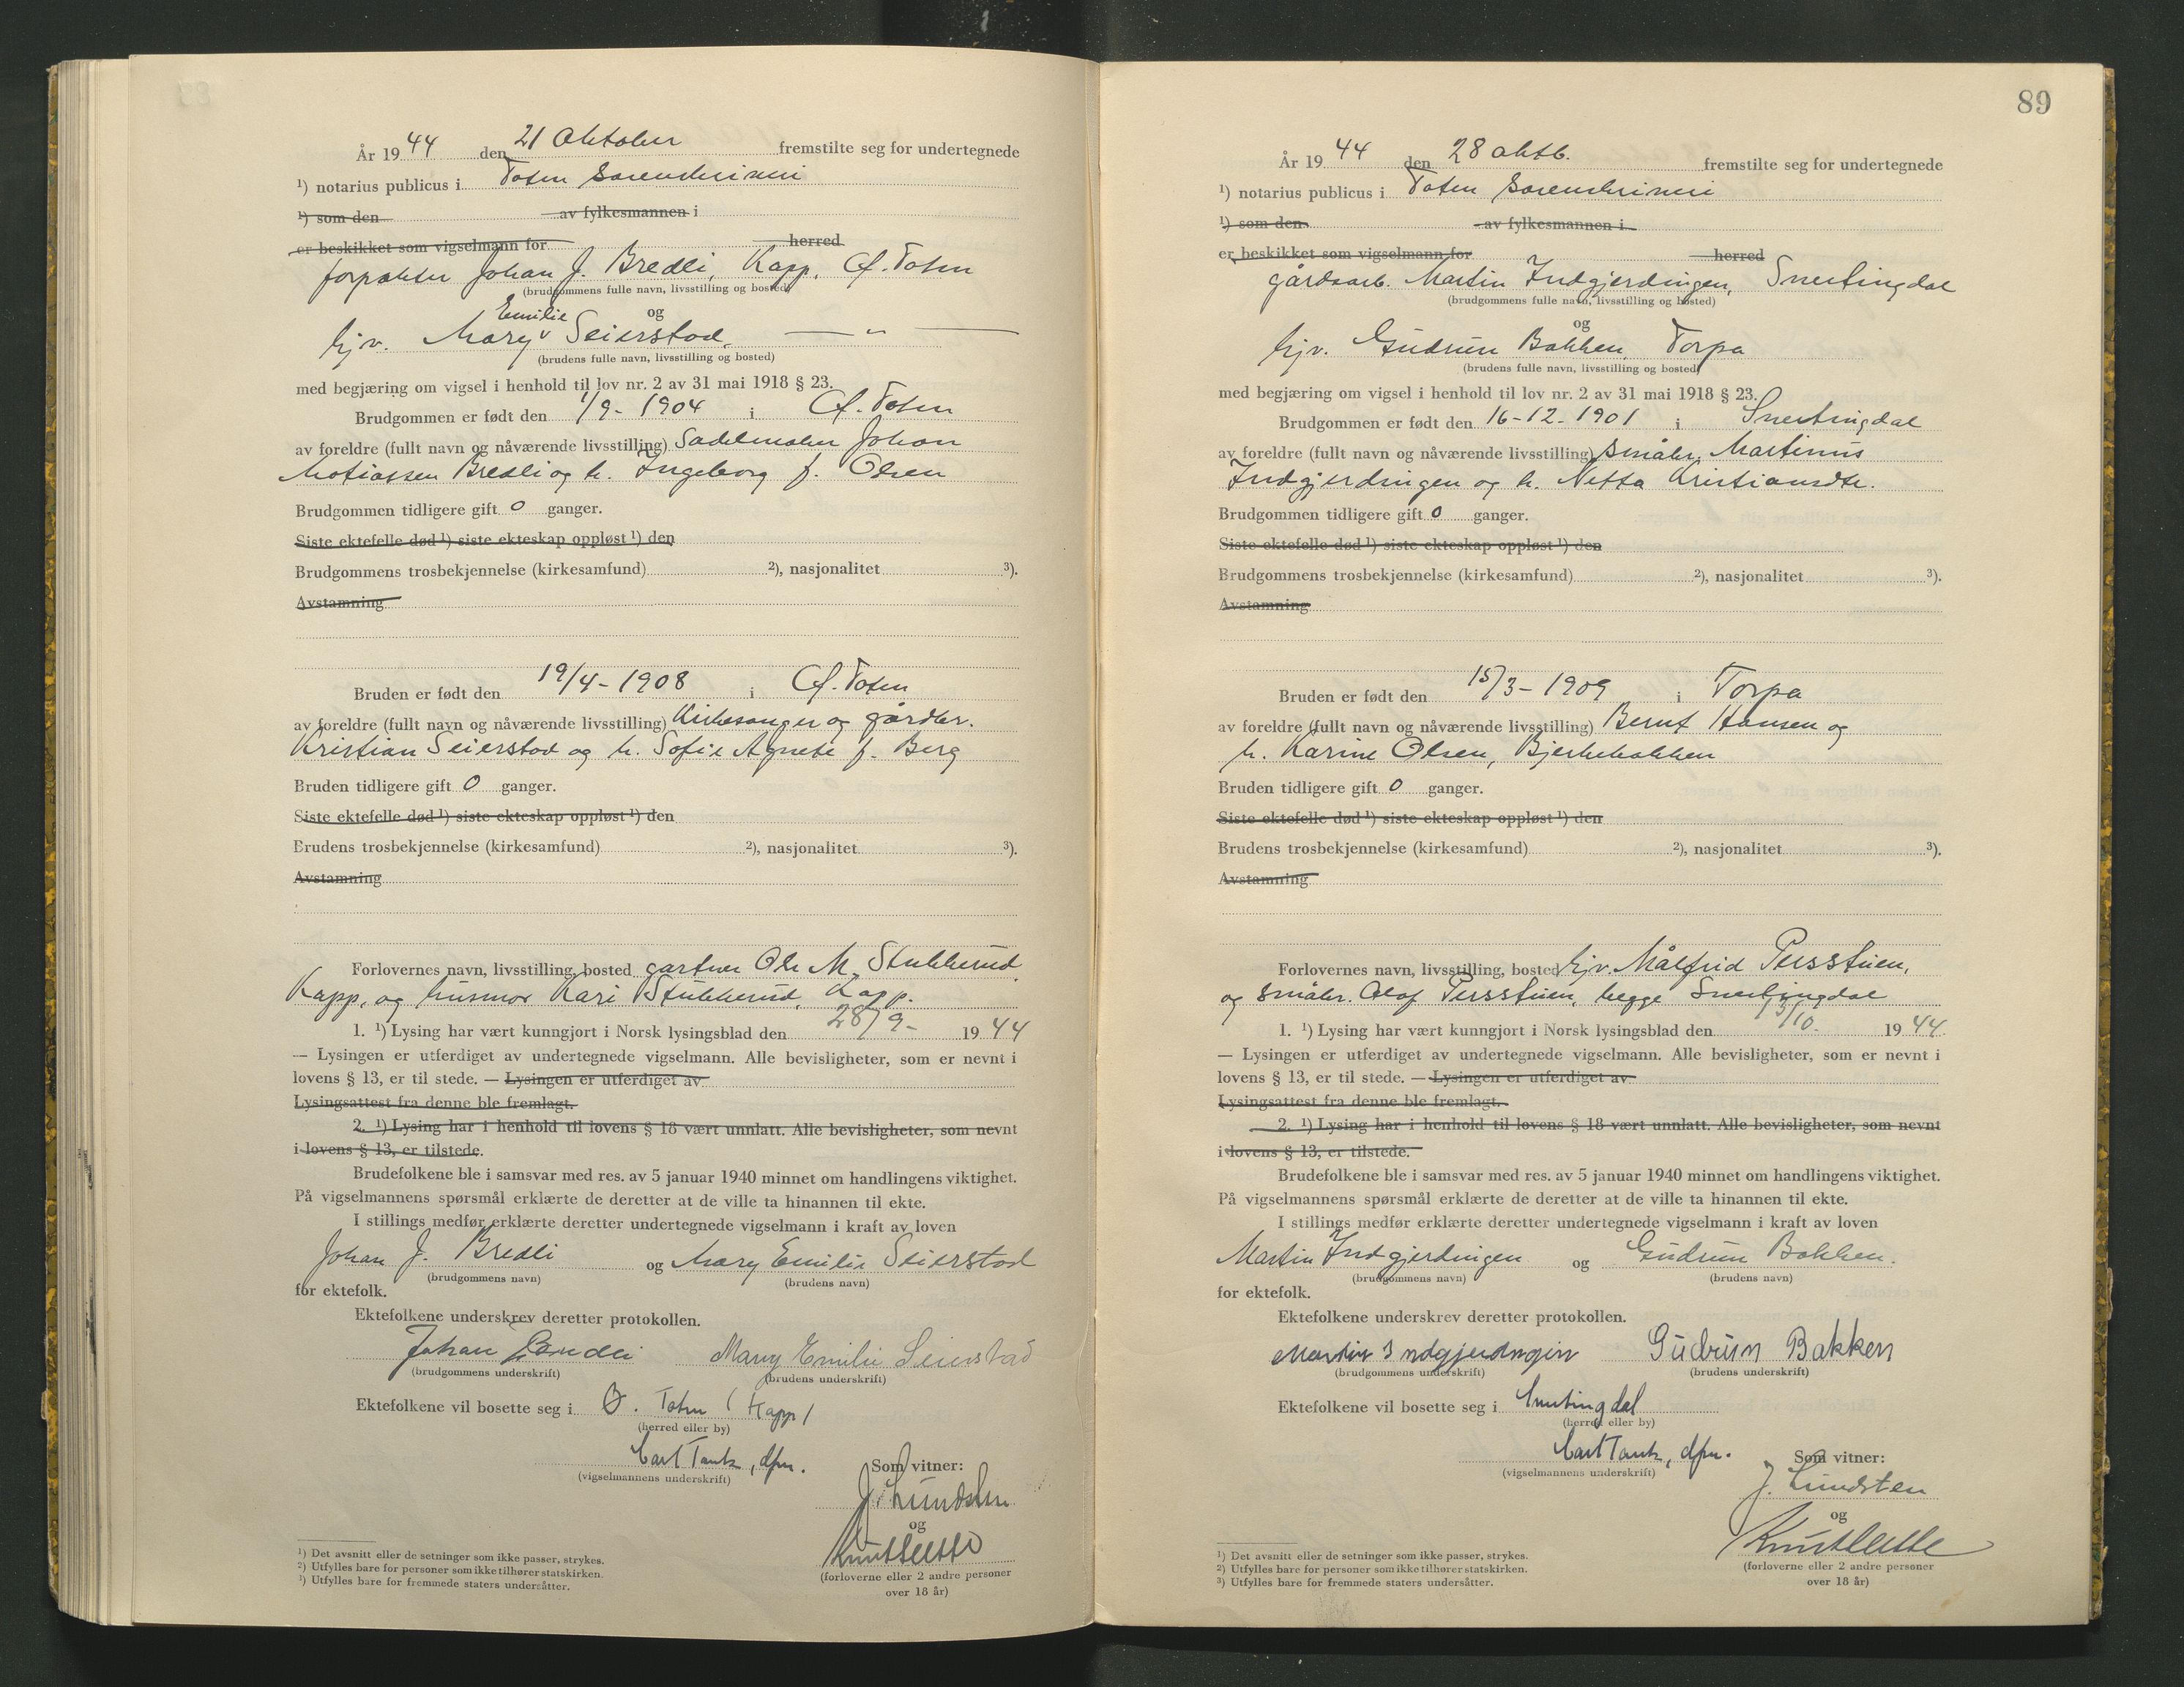 År 19 44 den 21 Oktober fremstilte seg for undertegnede
¹) notarius publicus i Toten Sorenskriveri
¹) som den av fylkesmannen i
er beskikket som vigselmann for herred
forpakter Johan J. Bredli, Kapp, Ø. Toten
(brudgommens fulle navn, livsstilling og bosted)
Emilie og
hjv. Mary v Seierstad, — " —
(brudens fulle navn, livsstilling og bosted)
med begjæring om vigsel i henhold til lov nr. 2 av 31 mai 1918 § 23.
Brudgommen er født den 1/9 - 1904 i Ø. Toten
av foreldre (fullt navn og nåværende livsstilling) Sadelmaker Johan
Matiassen Bredli og h. Ingeborg f. Olsen
Brudgommen tidligere gift 0 ganger.
Siste ektefelle død ¹) siste ekteskap oppløst ¹) den
Brudgommens trosbekjennelse (kirkesamfund) ²), nasjonalitet ³).
Avstamning
Bruden er født den 19/4 - 1908 i Ø. Toten
av foreldre (fullt navn og nåværende livsstilling) Kirkesanger og gårdbr.
Kristian Seierstad og h. Sofie Agnete f. Berg
Bruden tidligere gift 0 ganger.
Siste ektefelle død ¹) siste ekteskap oppløst ¹) den
Brudens trosbekjennelse (kirkesamfund) ²), nasjonalitet ³).
Avstamning
Forlovernes navn, livsstilling, bosted gartner Ole M. Stubberud
Kapp, og husmor Kari Stubberud, Kapp.
1. ¹) Lysing har vært kunngjort i Norsk lysingsblad den 28/9 - 19 44
— Lysingen er utferdiget av undertegnede vigselmann. Alle bevisligheter, som er nevnt i
lovens § 13, er til stede. — Lysingen er utferdiget av
Lysingsattest fra denne ble fremlagt.
2. ¹) Lysing har i henhold til lovens § 18 vært unnlatt. Alle bevisligheter, som nevnt
i lovens § 13, er tilstede.
Brudefolkene ble i samsvar med res. av 5 januar 1940 minnet om handlingens viktighet.
På vigselmannens spørsmål erklærte de deretter at de ville ta hinannen til ekte.
I stillings medfør erklærte deretter undertegnede vigselmann i kraft av loven
Johan J. Bredli og Mary Emilie Seierstad
(brudgommens navn) (brudens navn)
for ektefolk.
Ektefolkene underskrev deretter protokollen.
Johan Bredli Mary Emilie Seierstad
(brudgommens underskrift) (brudens underskrift)
Ektefolkene vil bosette seg i Ø. Toten (Kapp)
(herred eller by)
Carl Tank, dfm. Som vitner:
(vigselmannens underskrift)
J. Lundsten
og
(forloverne eller 2 andre personer
over 18 år)
¹) Det avsnitt eller de setninger som ikke passer, strykes.
²) Utfylles bare for personer som ikke tilhører statskirken.
³) Utfylles bare for fremmede staters undersåtter.
89
År 19 44 den 28 oktb. fremstilte seg for undertegnede
¹) notarius publicus i Toten Sorenskriveri
¹) som den av fylkesmannen i
er beskikket som vigselmann for herred
gårdsarb. Martin Indgjerdingen, Snertingdal
(brudgommens fulle navn, livsstilling og bosted)
og
hjv. Gudrun Bakken, Torpa
(brudens fulle navn, livsstilling og bosted)
med begjæring om vigsel i henhold til lov nr. 2 av 31 mai 1918 § 23.
Brudgommen er født den 16-12-1901 i Snertingdal
av foreldre (fullt navn og nåværende livsstilling) småbr. Martinus
Indgjerdingen og h. Netta Kristiansdtr.
Brudgommen tidligere gift 0 ganger.
Siste ektefelle død ¹) siste ekteskap oppløst ¹) den
Brudgommens trosbekjennelse (kirkesamfund) ²), nasjonalitet ³).
Avstamning
Bruden er født den 15/3 - 1909 i Torpa
av foreldre (fullt navn og nåværende livsstilling) Bernt Hansen og
h. Karine Olsen, Bjerkebakken
Bruden tidligere gift 0 ganger.
Siste ektefelle død ¹) siste ekteskap oppløst ¹) den
Brudens trosbekjennelse (kirkesamfund) ²), nasjonalitet ³).
Avstamning
Forlovernes navn, livsstilling, bosted hjv. Målfrid Persstuen,
og småbr. Olaf Persstuen, begge Snertingdal
1. ¹) Lysing har vært kunngjort i Norsk lysingsblad den /10. 19 44.
— Lysingen er utferdiget av undertegnede vigselmann. Alle bevisligheter, som er nevnt i
lovens § 13, er til stede. — Lysingen er utferdiget av
Lysingsattest fra denne ble fremlagt.
2. ¹) Lysing har i henhold til lovens § 18 vært unnlatt. Alle bevisligheter, som nevnt
i lovens § 13, er tilstede.
Brudefolkene ble i samsvar med res. av 5 januar 1940 minnet om handlingens viktighet.
På vigselmannens spørsmål erklærte de deretter at de ville ta hinannen til ekte.
I stillings medfør erklærte deretter undertegnede vigselmann i kraft av loven
Martin Indgjerdingen og Gudrun Bakken.
(brudgommens navn) (brudens navn)
for ektefolk.
Ektefolkene underskrev deretter protokollen.
Martin Indgjerdingen Gudrun Bakken
(brudgommens underskrift) (brudens underskrift)
Ektefolkene vil bosette seg i Snertingdal
(herred eller by)
Carl Tank, dfm. Som vitner:
(vigselmannens underskrift)
J. Lundsten
og
(forloverne eller 2 andre personer
over 18 år)
¹) Det avsnitt eller de setninger som ikke passer, strykes.
²) Utfylles bare for personer som ikke tilhører statskirken.
³) Utfylles bare for fremmede staters undersåtter.